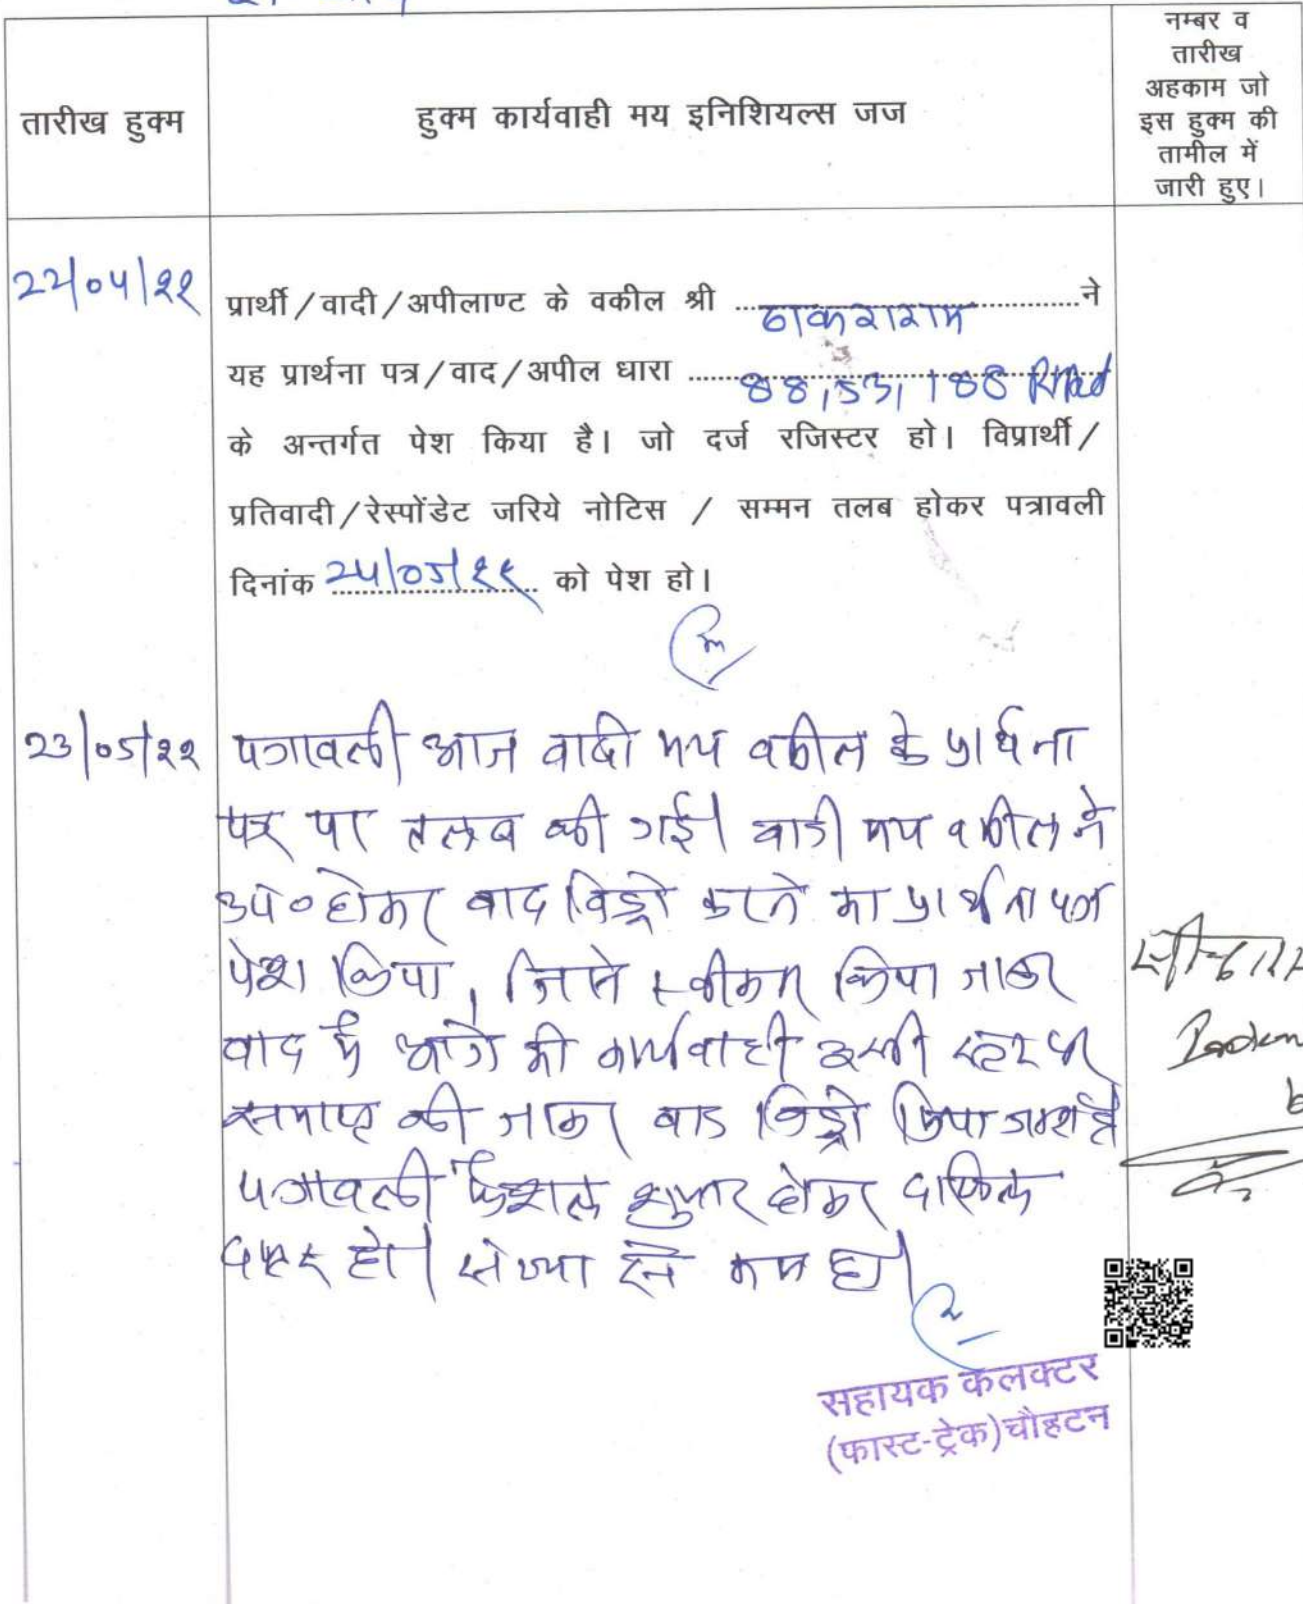 नम्बर व
तारीख
अहकाम जो
इस हुक्म की
तामील में
जारी हुए।
तारीख हुक्म
हुक्म कार्यवाही मय इनिशियल्स जज
22/04/22
प्रार्थी/वादी/अपीलाण्ट के वकील श्री ठाकराराम ने
यह प्रार्थना पत्र/वाद/अपील धारा 88,53,188
के अन्तर्गत पेश किया है। जो दर्ज रजिस्टर हो। विप्रार्थी/
प्रतिवादी/रेस्पोंडेट जरिये नोटिस / सम्मन तलब होकर पत्रावली
दिनांक 24/05/22 को पेश हो।
23/05/22
पत्रावली आज वादी मय वकील के प्रार्थना
पत्र पर तलब की गई। वादी मय वकील ने
उप० होकर वाद विड्रो करने का प्रार्थना पत्र
पेश किया, जिसे स्वीकार किया जाकर
वाद में आगे की कार्यवाही इसी स्टेज पर
समाप्त की जाकर वाद विड्रो किया जाता है
पत्रावली फैशल शुमार होकर दाखिल
दफ्तर हो। संख्या से कम हो।
सहायक कलक्टर
(फास्ट-ट्रेक)चौहटन